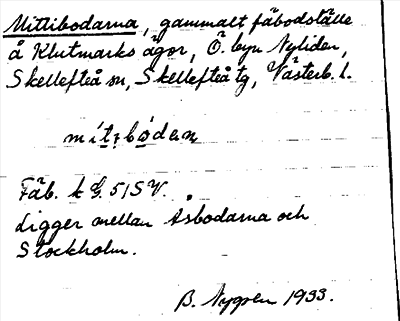 Mittibodarna, gammalt fäbodställe
å Klutmarks ägor, Ö. byn Nyliden,
Skellefteå sn, Skellefteå tg, Västerb. l.
Fäb. k G. 51 SV.
Ligger mellan Åsbodarna och
Stockholm.
B. Nygren 1933.